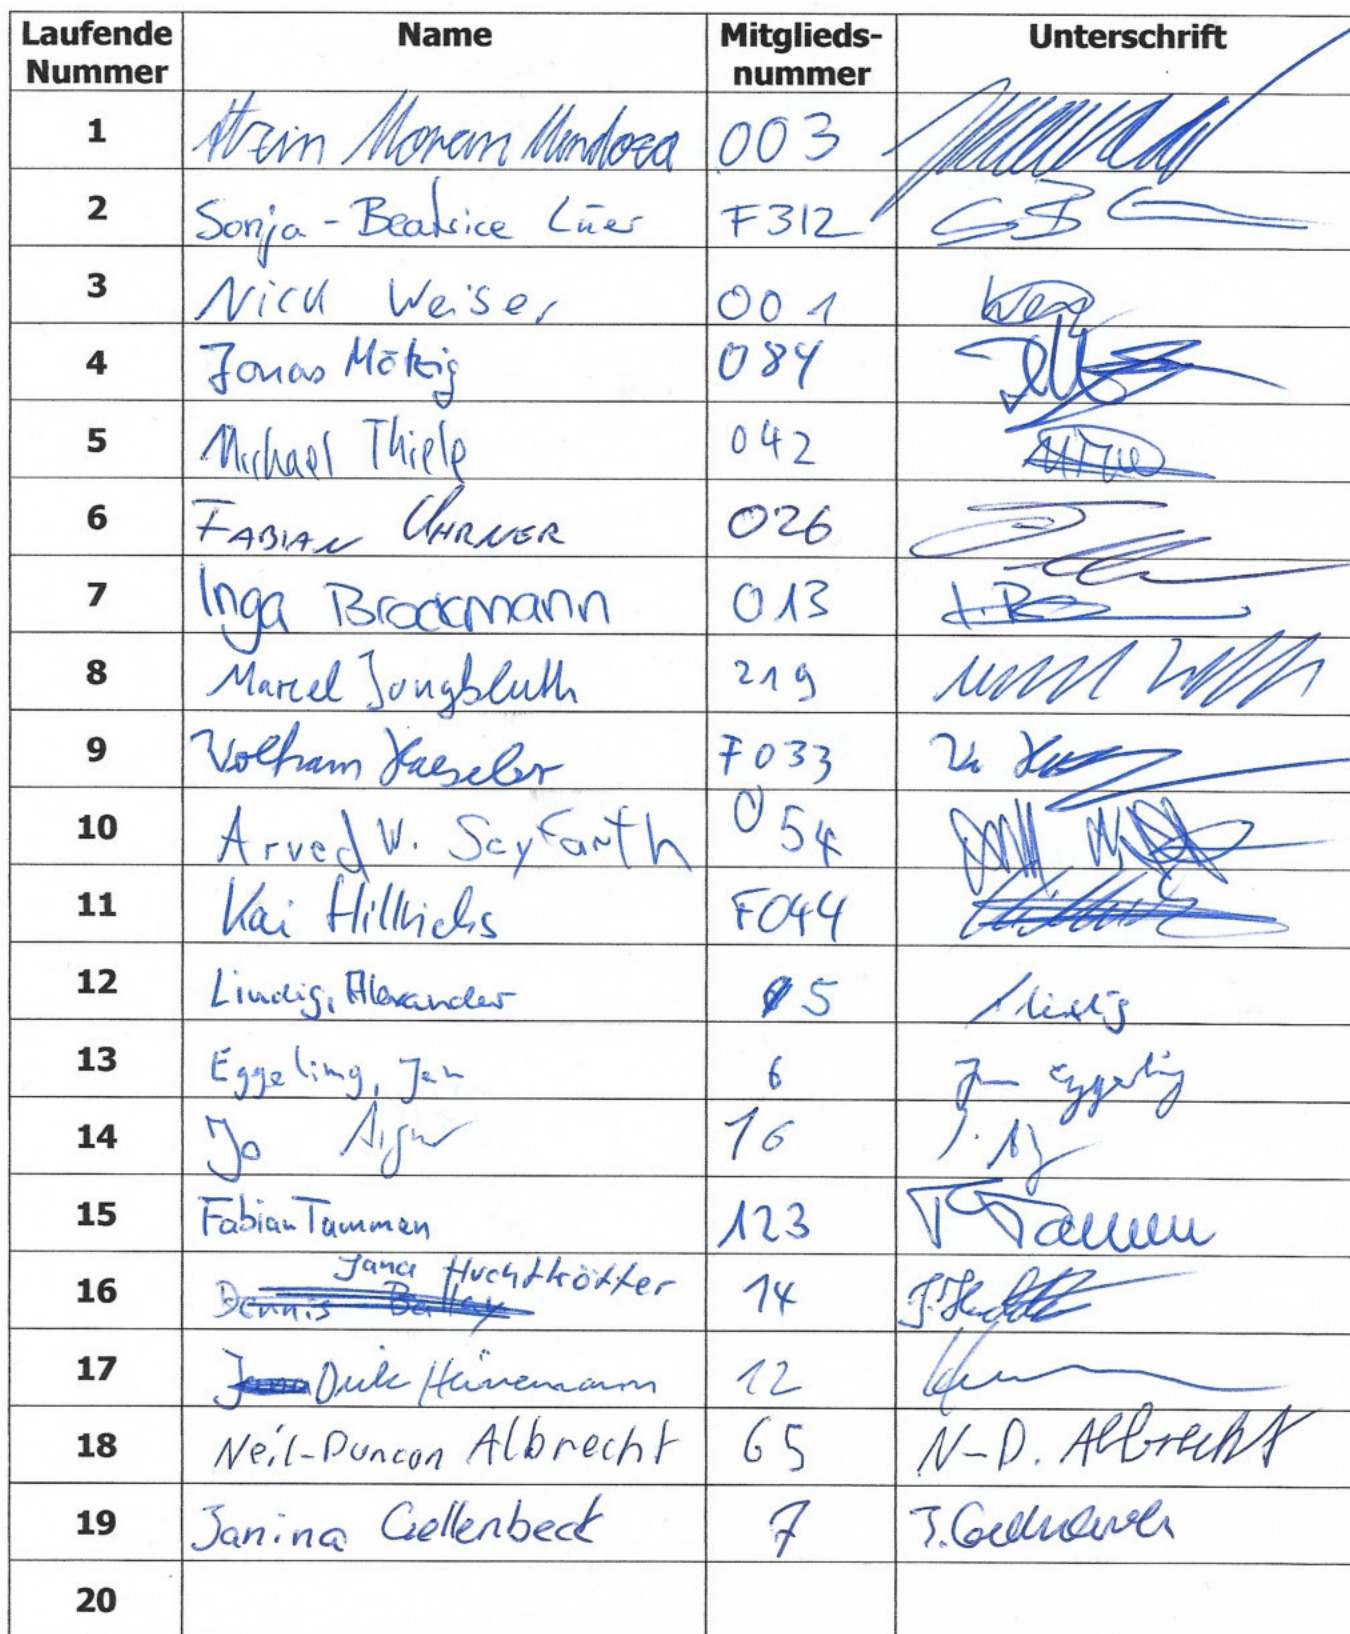 Laufende Nummer Name Mitglieds-nummer Unterschrift
1 Moran Mendoza 003
2 Sonja-Beatrice Lüer F312
3 Nick Weiser 001
4 Jonas Mötzig 084
5 Michael Thiele 042
6 FABIAN UHRNER 026
7 Inga Brockmann 013
8 Marcel Jungbluth 219
9 Wolfram Haeseler F033
10 Arved W. Seyfarth 054
11 Kai Hillrichs F044
12 Lindig, Alexander 5
13 Eggeling, Jan 6 Jan Eggeling
14 Jo 16
15 Fabian Tammen 123 F Tammen
Jana Huchtkötter
16 Dennis 14
17 Dirk Hünemann 12
18 Neil-Duncan Albrecht 65 N-D. Albrecht
19 Janina Gellenbeck 7 J. Gellenbeck
20